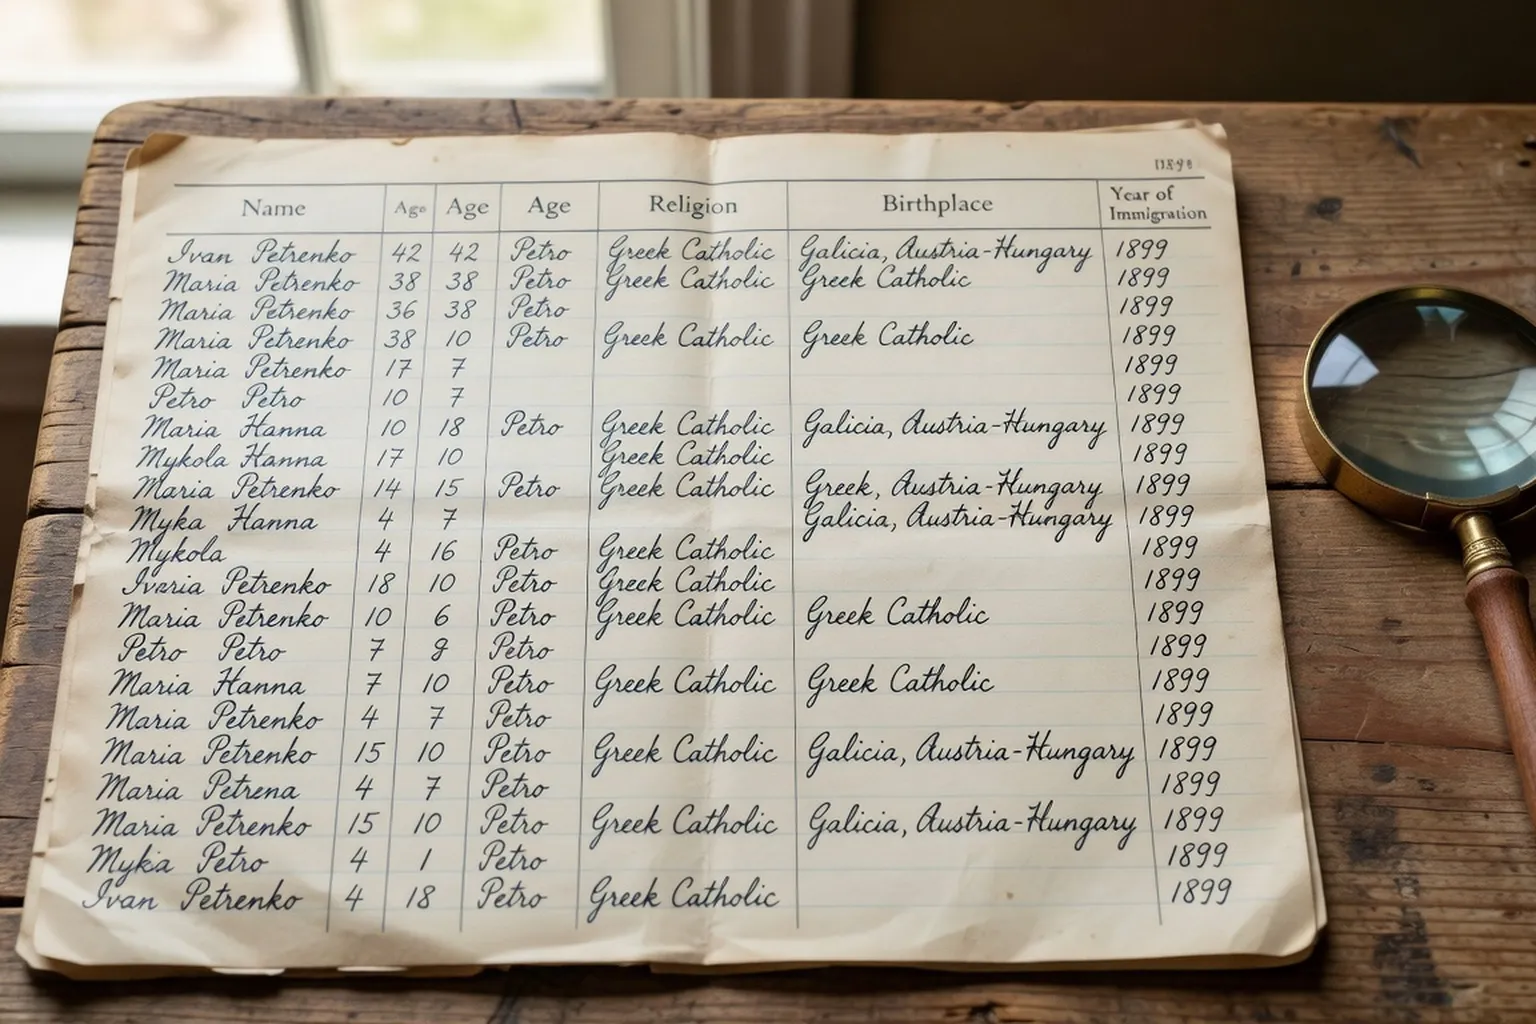 Name Age Age Age Religion Birthplace Year of Immigration
Ivan Petrenko 42 42 Petro Greek Catholic Galicia, Austria-Hungary 1899
Maria Petrenko 38 38 Petro Greek Catholic Greek Catholic 1899
Maria Petrenko 36 38 Petro 1899
Maria Petrenko 38 10 Petro Greek Catholic Greek Catholic 1899
Maria Petrenko 17 7 1899
Petro Petro 10 7 1899
Maria Hanna 10 18 Petro Greek Catholic Galicia, Austria-Hungary 1899
Mykola Hanna 17 10 Greek Catholic 1899
Maria Petrenko 14 15 Petro Greek Catholic Greek, Austria-Hungary 1899
Myka Hanna 4 7 Galicia, Austria-Hungary 1899
Mykola 4 16 Petro Greek Catholic 1899
Petrenko 18 10 Petro Greek Catholic 1899
Maria Petrenko 10 6 Petro Greek Catholic Greek Catholic 1899
Petro Petro 7 Petro 1899
Maria Hanna 7 10 Petro Greek Catholic Greek Catholic 1899
Maria Petrenko 4 7 Petro 1899
Maria Petrenko 15 10 Petro Greek Catholic Galicia, Austria-Hungary 1899
Maria Petrena 4 7 Petro 1899
Maria Petrenko 15 10 Petro Greek Catholic Galicia, Austria-Hungary 1899
Myka Petro 4 1 Petro 1899
Ivan Petrenko 4 18 Petro Greek Catholic 1899